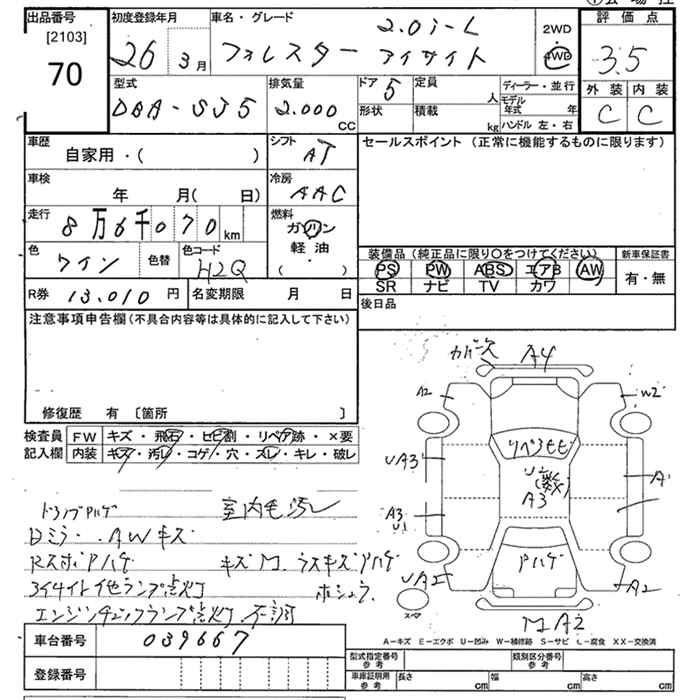 出品番号
[2103]
70
初度登録年月
26 3月
車名・グレード
2.0i-L
フォレスター アイサイト
2WD
4WD
評価点
3.5
外装 内装
C C
型式
DBA-SJ5
排気量
2.000 CC
ドア 5
形状
定員 人
積載 kg
ディーラー・並行
モデル年式 年
ハンドル 左・右
車歴
自家用・( )
シフト
AT
セールスポイント (正常に機能するものに限ります)
車検
年 月( 日)
冷房
AAC
走行
8万6千070km
燃料
ガソリン
軽油
( ・ )
色
ワイン
色替
色コード
H2Q
装備品 (純正品に限り〇をつけてください)
PS PW ABS エアB AW
SR ナビ TV カワ
新車保証書
有・無
R券 13,010 円
名変期限 月 日
後日品
注意事項申告欄 (不具合内容等は具体的に記入して下さい)
修復歴 有 〔箇所 〕
検査員記入欄
FW キズ・飛石・ヒビ割・リペア跡・×要
内装 キズ・汚レ・コゲ・穴・スレ・キレ・破レ
室内毛汚レ
AWキズ
エンジンチェックランプ点灯
A4
A2
W2
UA3
A1
A3
U1
A3
Pハゲ
A2
スペア
MA2
A-キズ E-エクボ U-凹み W-補修跡 S-サビ C-腐食 XX-交換済
車台番号 039667
登録番号
型式指定番号 参考
類別区分番号 参考
車庫証明用 参考
長さ cm
幅 cm
高さ cm